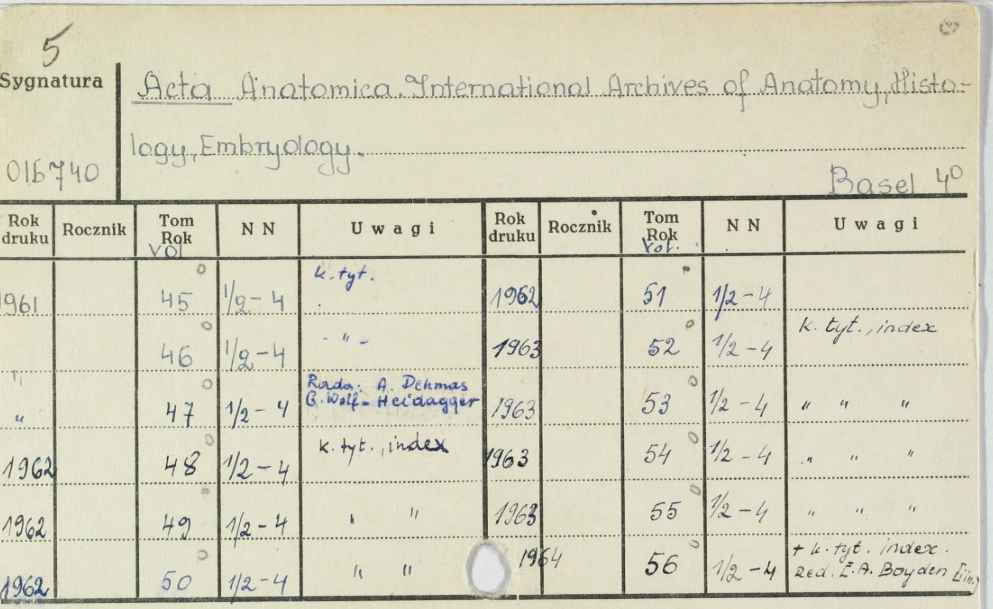 5
Sygnatura
Acta Anatomica. International Archives of Anatomy, Histo-
logy, Embryology.
016740
Basel 4°
Rok druku Rocznik Tom Rok Vol N N Uwagi Rok druku Rocznik Tom Rok Vol. N N Uwagi
1961 45 1/2-4 k. tyt. 1962 51 1/2-4
46 1/2-4 - " - 1963 52 1/2-4 k. tyt., index
" 47 1/2-4 Reda: A. Dehmas G. Wolf-Heidagger 1963 53 1/2-4 " " "
1962 48 1/2-4 k. tyt., index 1963 54 1/2-4 " " "
1962 49 1/2-4 " " 1963 55 1/2-4 " " "
1962 50 1/2-4 " " 1964 56 1/2-4 + k. tyt. index. Red. E.A. Boyden